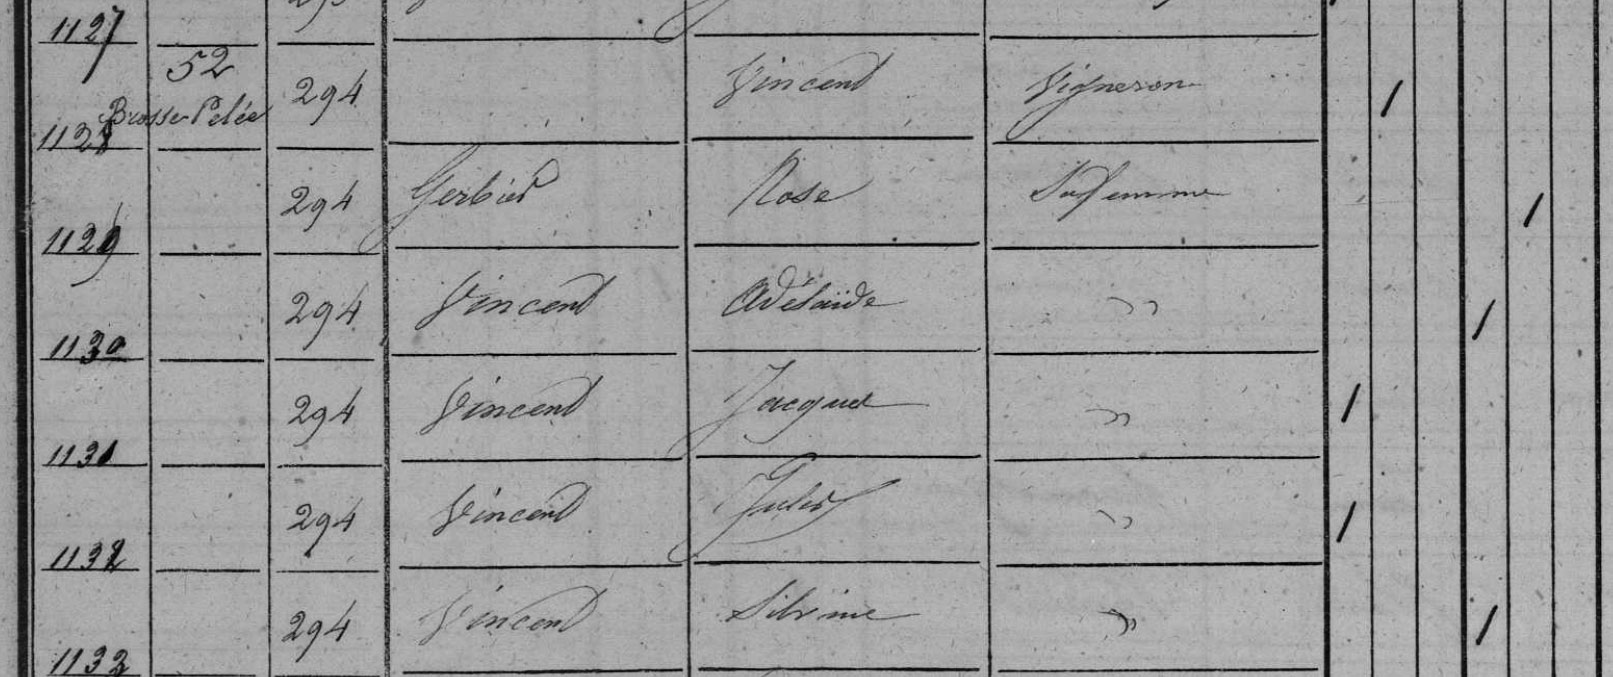 1127
52
Brosse Pelée 294 Vincent Vigneron /
1128
294 Gerbier Rose Sa femme /
1129
294 Vincent Adélaïde " /
1130
294 Vincent Jacques " /
1131
294 Vincent Jules " /
1132
294 Vincent Silvine " /
1133